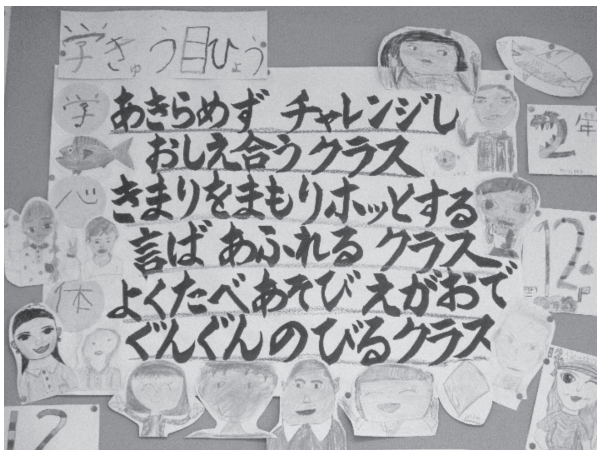 学きゅう目ひょう
学 あきらめず チャレンジし
おしえ合うクラス
心 きまりをまもりホッとする
言ば あふれる クラス
体 よくたべあそび えがおで
ぐんぐんのびるクラス
2年
12
12